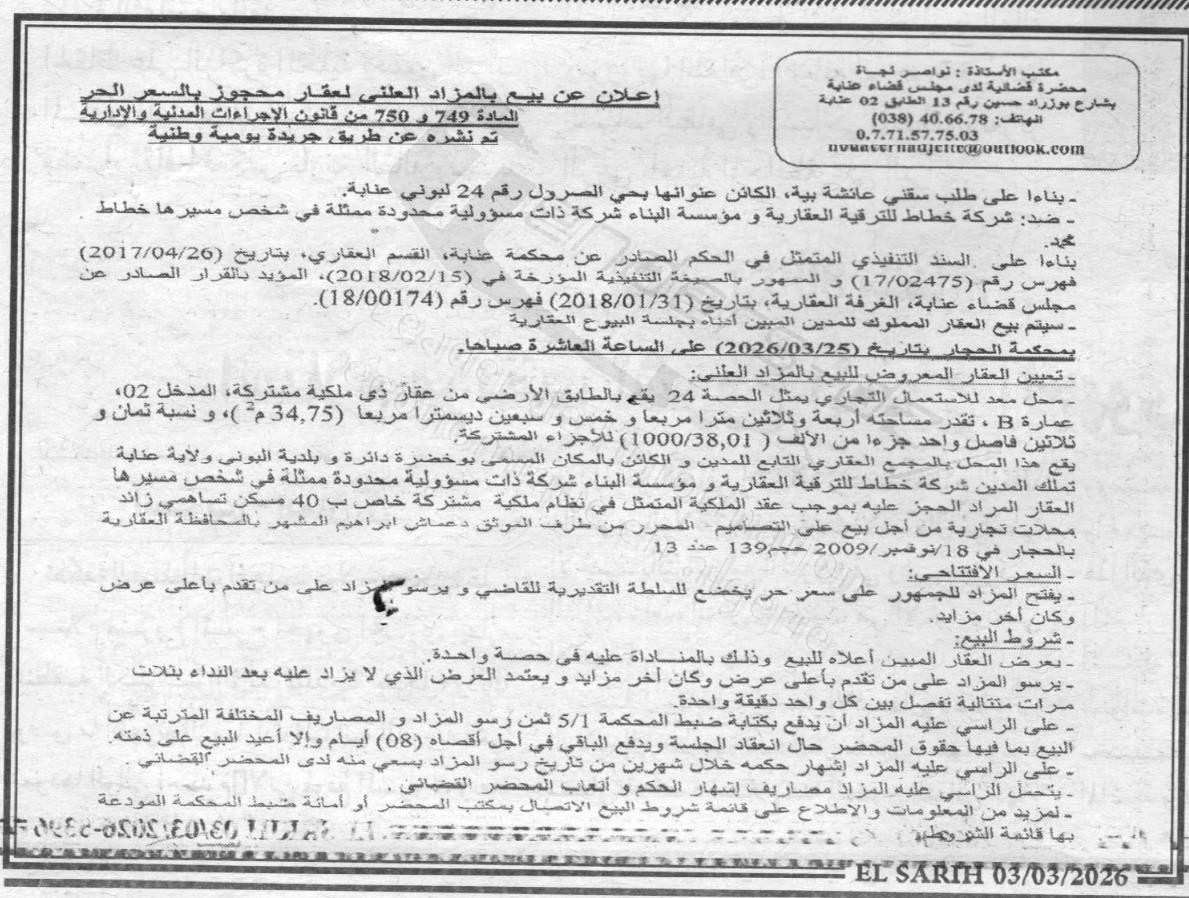 مكتب الأستاذة : نواصر نجاة
محضرة قضائية لدى مجلس قضاء عنابة
بشارع بوزراد حسين رقم 13 الطابق 02 عنابة
الهاتف: 40.66.78 (038)
0.7.71.57.75.03
إعلان عن بيع بالمزاد العلني لعقار محجوز بالسعر الحر
المادة 749 و 750 من قانون الإجراءات المدنية والإدارية
تم نشره عن طريق جريدة يومية وطنية
ـ بناءا على طلب سقني عائشة بية، الكائن عنوانها بحي الصرول رقم 24 لبوني عنابة.
ـ ضد: شركة خطاط للترقية العقارية و مؤسسة البناء شركة ذات مسؤولية محدودة ممثلة في شخص مسيرها خطاط
محمد.
بناءا على السند التنفيذي المتمثل في الحكم الصادر عن محكمة عنابة، القسم العقاري، بتاريخ (2017/04/26)
فهرس رقم (17/02475) و الممهور بالصيغة التنفيذية المؤرخة في (2018/02/15)، المؤيد بالقرار الصادر عن
مجلس قضاء عنابة، الغرفة العقارية، بتاريخ (2018/01/31) فهرس رقم (18/00174).
ـ سيتم بيع العقار المملوك للمدين المبين أدناه بجلسة البيوع العقارية
بمحكمة الحجار بتاريخ (2026/03/25) على الساعة العاشرة صباحا.
ـ تعيين العقار المعروض للبيع بالمزاد العلني:
ـ محل معد للاستعمال التجاري يمثل الحصة 24 يقع بالطابق الأرضي من عقار ذي ملكية مشتركة، المدخل 02،
عمارة B ، تقدر مساحته أربعة وثلاثين مترا مربعا و خمس و سبعين ديسمترا مربعا (34,75 م²)، و نسبة ثمان و
ثلاثين فاصل واحد جزءا من الألف ( 1000/38,01) للأجزاء المشتركة.
يقع هذا المحل بالمجمع العقاري التابع للمدين و الكائن بالمكان المسمى بوخضرة دائرة و بلدية البوني ولاية عنابة
تملك المدين شركة خطاط للترقية العقارية و مؤسسة البناء شركة ذات مسؤولية محدودة ممثلة في شخص مسيرها
العقار المراد الحجز عليه بموجب عقد الملكية المتمثل في نظام ملكية مشتركة خاص ب 40 مسكن تساهمي زائد
محلات تجارية من أجل بيع على التصاميم المحرر من طرف الموثق دعماش ابراهيم المشهر بالمحافظة العقارية
بالحجار في 18/نوفمبر/2009 حجم139 عدد 13
ـ السعر الافتتاحي:
ـ يفتح المزاد للجمهور على سعر حر يخضع للسلطة التقديرية للقاضي و يرسو المزاد على من تقدم بأعلى عرض
وكان أخر مزايد.
ـ شروط البيع:
ـ يعرض العقار المبين أعلاه للبيع وذلك بالمنـاداة عليه في حصة واحدة.
ـ يرسو المزاد على من تقدم بأعلى عرض وكان أخر مزايد و يعتمد العرض الذي لا يزاد عليه بعد النداء بثلاث
مرات متتالية تفصل بين كل واحد دقيقة واحدة.
ـ على الراسي عليه المزاد أن يدفع بكتابة ضبط المحكمة 5/1 ثمن رسو المزاد و المصاريف المختلفة المترتبة عن
البيع بما فيها حقوق المحضر حال انعقاد الجلسة ويدفع الباقي في أجل أقصاه (08) أيام وإلا أعيد البيع على ذمته.
ـ على الراسي عليه المزاد إشهار حكمه خلال شهرين من تاريخ رسو المزاد بسعي منه لدى المحضر القضائي
ـ يتحمل الراسي عليه المزاد مصاريف إشهار الحكم و أتعاب المحضر القضائي
ـ لمزيد من المعلومات والإطلاع على قائمة شروط البيع الاتصال بمكتب المحضر أو أمانة ضبط المحكمة المودعة
بها قائمة الشروط.
EL SARIH 03/03/2026